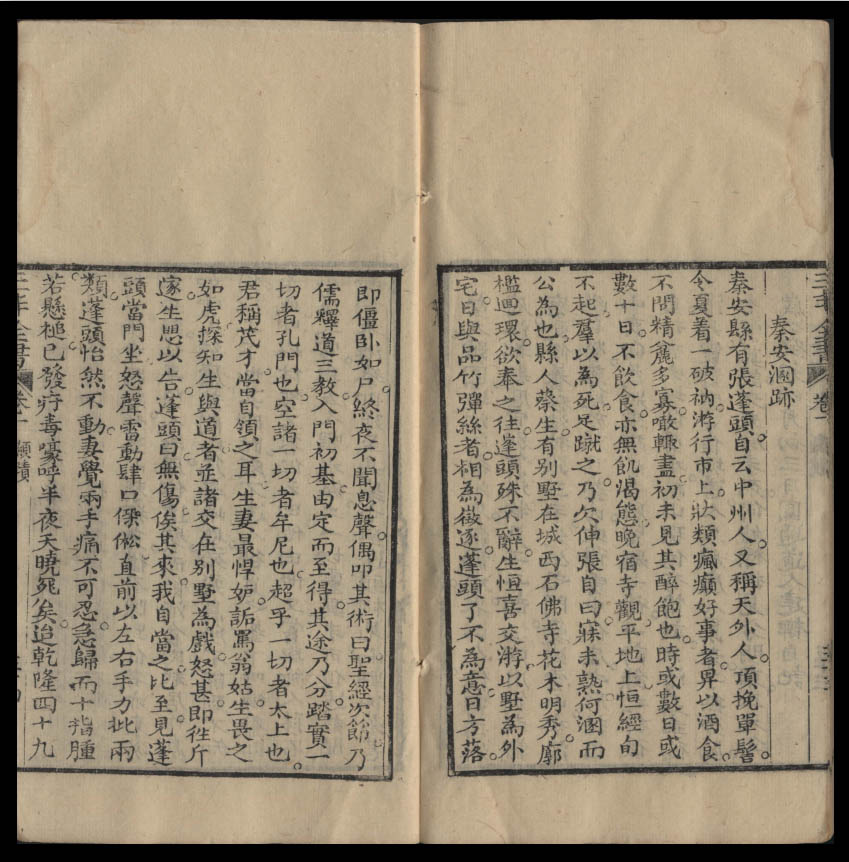 三丰全書 卷一
秦安溷跡
秦安縣有張蓬頭自云中州人又稱天外人項挽單髻
令夏着一破衲游行市上狀類瘋癲好事者畀以酒食
不問精麄多寡噉輒盡初未見其醉飽也時或數日或
數十日不飲食亦無飢渴態晚宿寺觀平地上恒經旬
不起羣以為死足蹴之乃欠伸張自曰寐未熟何溷而
公為也縣人蔡生有別墅在城西石佛寺花木明秀廓
檻迴環欲奉之往蓬頭殊不辭生恒喜交游以墅為外
宅日與品竹彈絲者相為徵逐蓬頭了不為意日方落
即僵臥如尸終夜不聞息聲偶叩其術曰聖經次節乃
儒釋道三教入門初基由定而至得其途乃分踏實一
切者孔門也空諸一切者牟尼也超乎一切者太上也
君稱茂才當自領之耳生妻最悍妒詬罵翁姑生畏之
如虎探知生與道者並諸交在別墅為戲怒甚即徃斤
逐生思以告蓬頭曰無傷俟其來我自當之比至見蓬
頭當門坐怒聲雷動肆口傑㑣直前以左右手力批兩
類蓬頭怡然不動妻覺兩手痛不可忍急歸而十指腫
若懸槌已發疔毒嚎呼半夜天曉死矣迨乾隆四十九
三丰全書 卷一 顯蹟